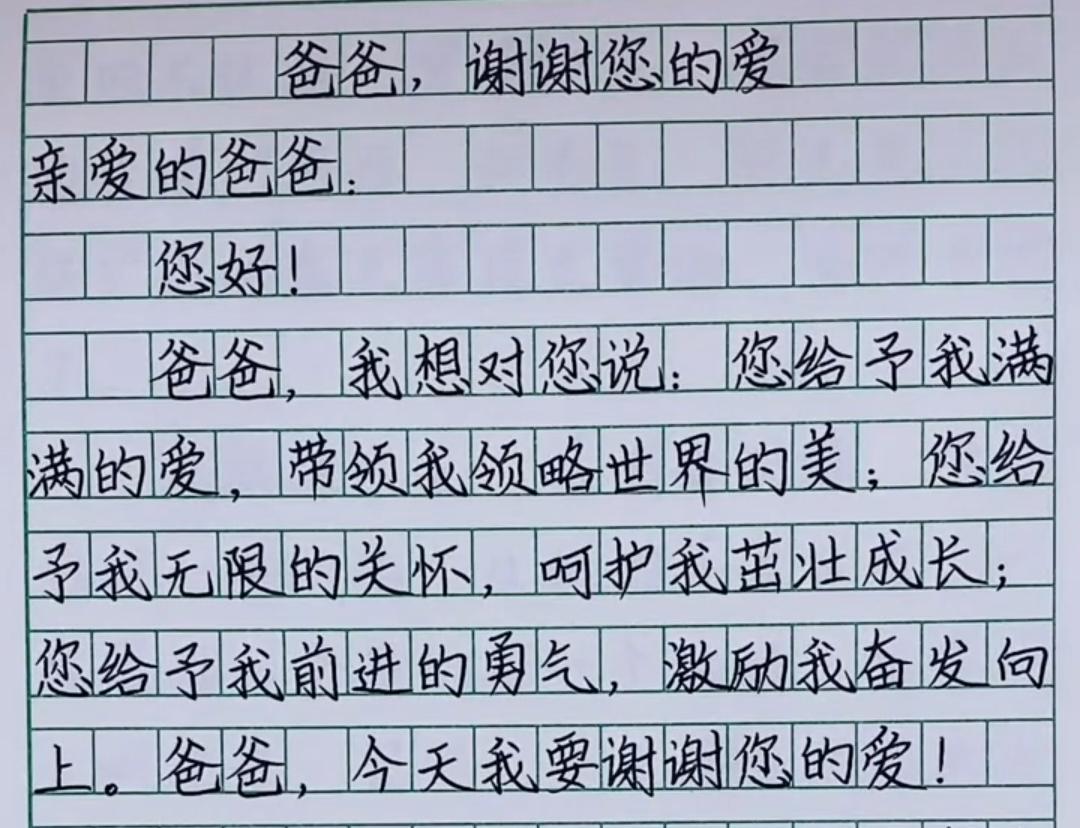 爸爸，谢谢您的爱
亲爱的爸爸：
您好！
爸爸，我想对您说：您给予我满
满的爱，带领我领略世界的美；您给
予我无限的关怀，呵护我茁壮成长；
您给予我前进的勇气，激励我奋发向
上。爸爸，今天我要谢谢您的爱！